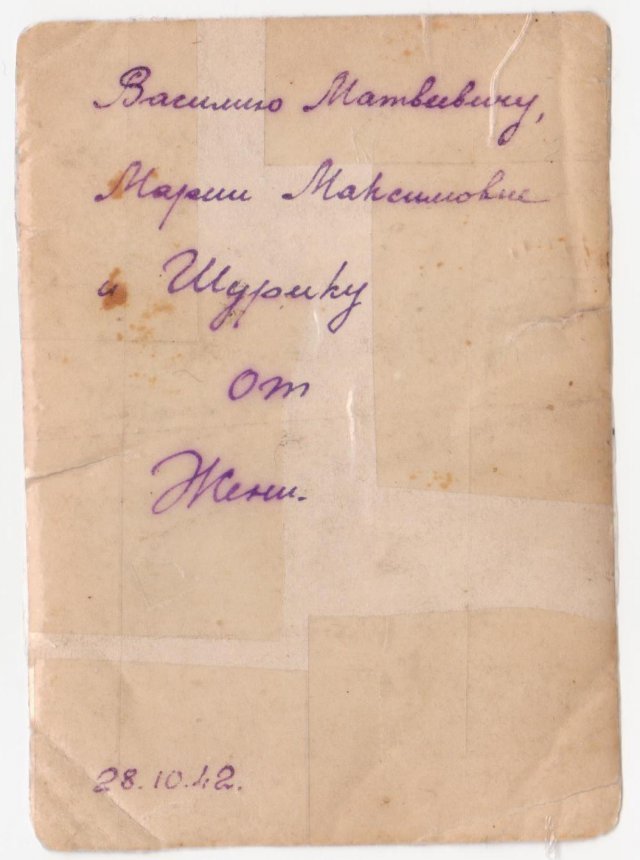 Василию Матвеевичу,
Марии Максимовне
и Шурику
от
Жени.
28.10.42.